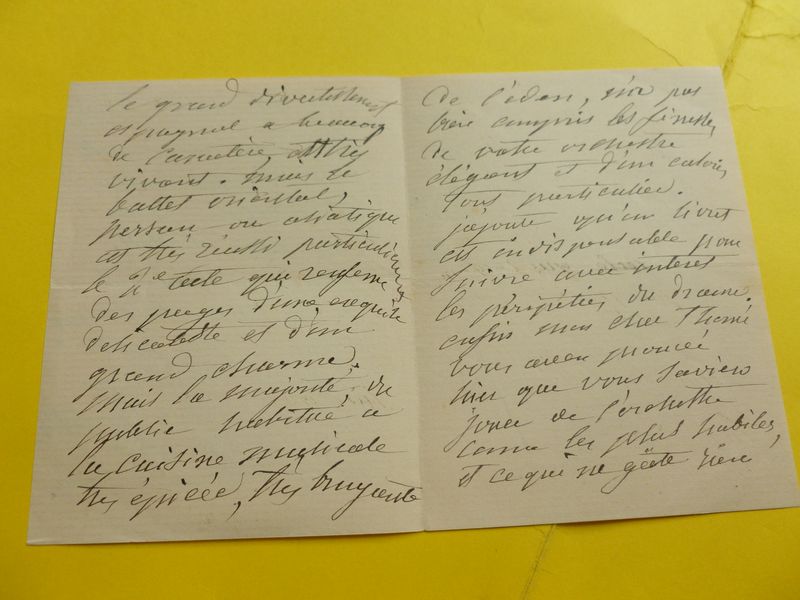 le grand divertissement
espagnol a beaucoup
de caractère, est très
vivant. mais le
ballet oriental,
persan ou asiatique
est très réussi particulièrement
le 2e acte qui renferme
des pages d'une exquise
delicatesse et d'un
grand charme.
mais la majorité du
public habitué a
la cuisine musicale
très épicée, très bruyante
de l'eden, n'a pas
bien compris les finesses
de votre orchestre
élégant et d'un coloris
tout particulier.
j'ajoute qu'un livret
est indispensable pour
suivre avec intérêt
les péripéties du drame.
enfin mon cher Thomé
vous avez prouvé
hier que vous saviez
jouer de l'orchestre
comme les plus habiles,
et ce qui ne gâte rien